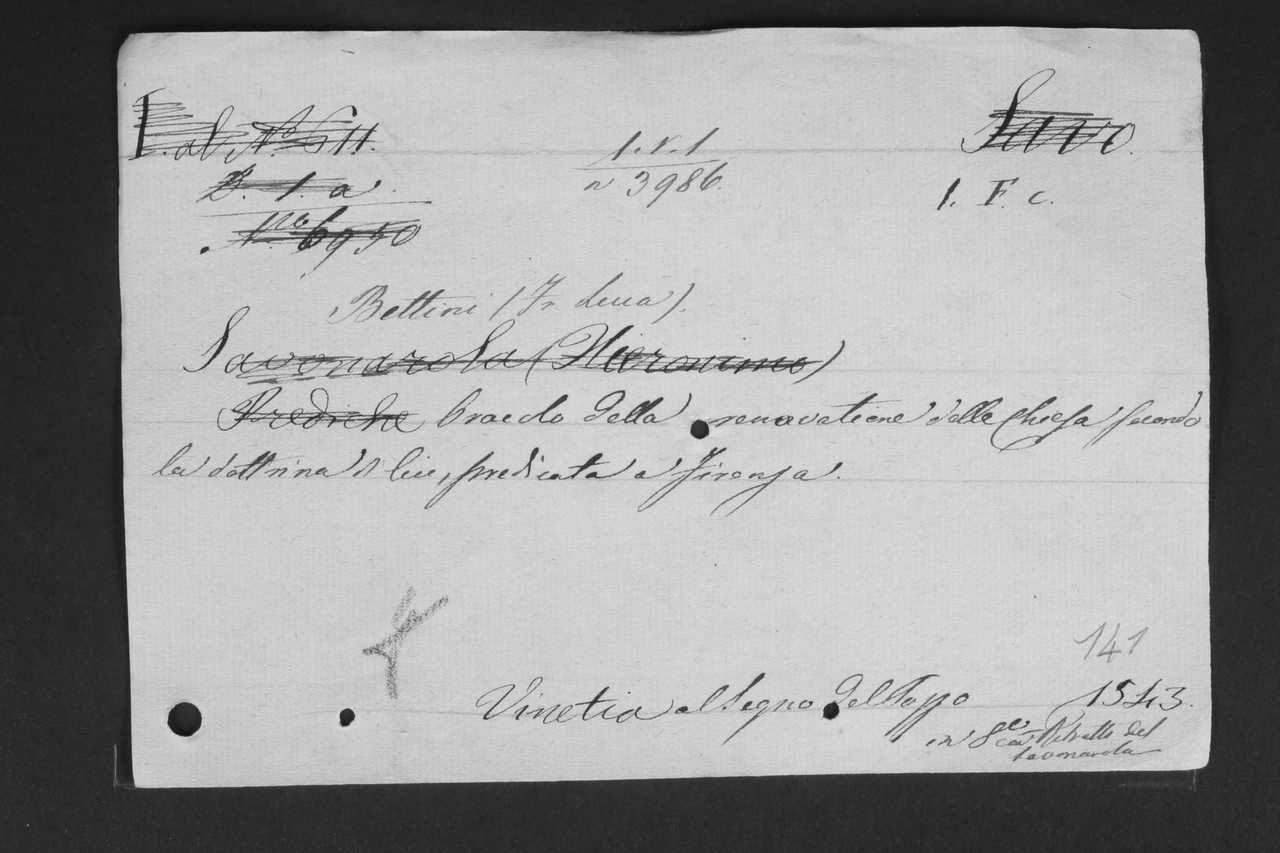 I. al. N.º S 11.
Savo.
1. r. 1
n 3986.
B. 1. a.
1. F. c.
N.ro 6950
Bettini (Fr Luca).
Savonarola (Hieronimo)
Prediche Oracolo della renovatione delle Chiesa secondo
la dottrina di lui, predicata a Firenza.
141
Vinetia al Segno del Pozzo 1543.
in 8.º con Ritratto del
Savonarola